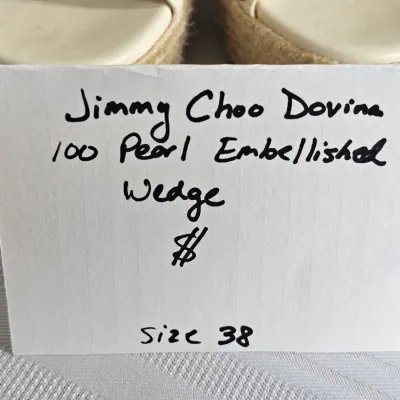 Jimmy Choo Dovina
100 Pearl Embellished
Wedge
$
Size 38